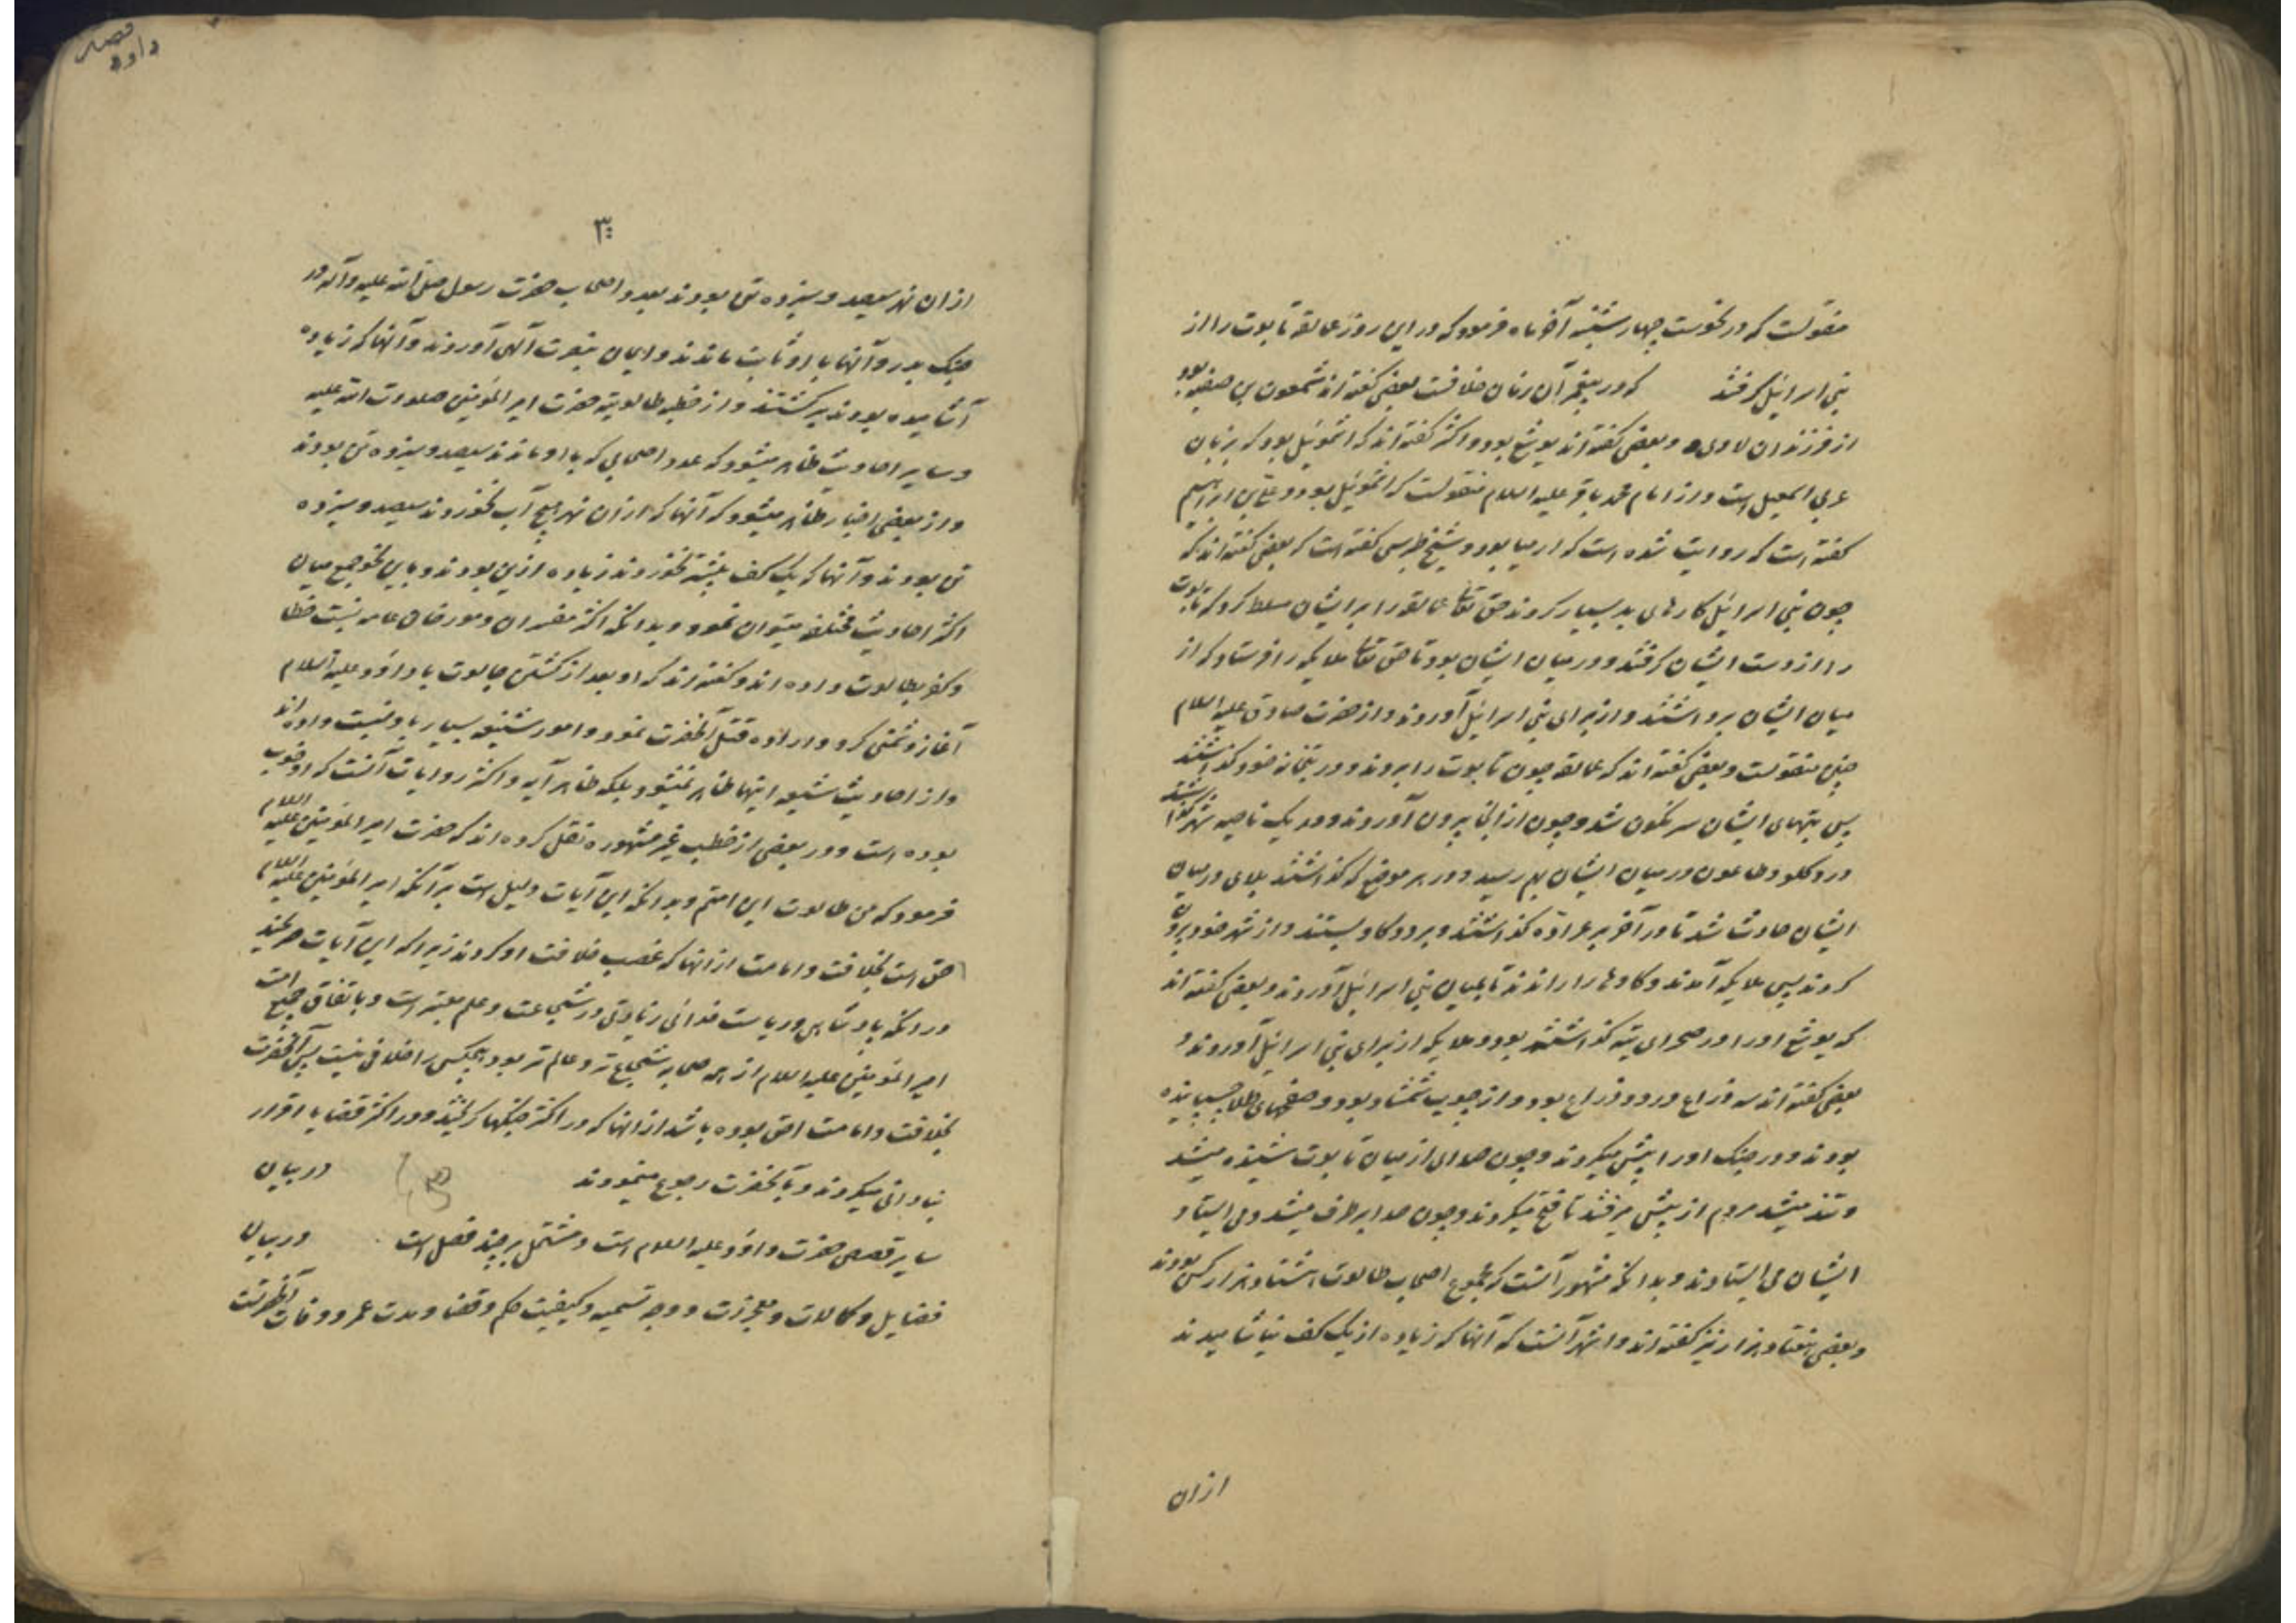 منقولست که در نحوست چهارشنبه آخر ماه فرمود که در این روز عمالقه تابوت را از
بنی اسرائیل گرفتند که در پیغمبر آن زمان خلافست بعضی گفته اند شمعون بن صفیه بود
از فرزندان لاوی و بعضی گفته اند یوشع بود و اکثر گفته اند که اشموئیل بود که بزبان
عربی اسمعیل است و از امام محمد باقر علیه السلام منقولست که اشموئیل بود و علی بن ابراهیم
گفته است که روایت شده است که ارمیا بود و شیخ طبرسی گفته است که بعضی گفته اند که
چون بنی اسرائیل کارهای بد بسیار کردند حق تعالی عمالقه را بر ایشان مسلط کرد که تابوت
را از دست ایشان گرفتند و در میان ایشان بود تا حق تعالی ملایکه را فرستاد که از
میان ایشان برداشتند و از برای بنی اسرائیل آوردند و از حضرت صادق علیه السلام
چنین منقولست و بعضی گفته اند که عمالقه چون تابوت را بردند و در بتخانه خود گذاشتند
پس بتهای ایشان سرنگون شد و چون از آنجا بیرون آوردند و در یک ناحیه شهر گذاشتند
درد گلو و طاعون در میان ایشان بهم رسید و در هر موضع که گذاشتند بلای در میان
ایشان حادث شد تا در آخر بر عراده گذاشتند و بر دو گاو بستند و از شهر خود بیرون
کردند پس ملایکه آمدند و گاوها را راندند تا بمیان بنی اسرائیل آوردند و بعضی گفته اند
که یوشع او را در صحرای تیه گذاشته بود و ملایکه از برای بنی اسرائیل آوردند و
بعضی گفته اند سه ذراع در دو ذراع بود و از چوب شمشاد بود و صفحهای طلا چسبانیده
بودند و در جنک او را پیش میکردند و چون صدای از میان تابوت شنیده میشد
و تند میشد مردم از پیش میرفتند تا فتح میکردند و چون صدا برطرف میشد و می ایستاد
ایشان می ایستادند و بدانکه مشهور آنست که مجموع اصحاب طالوت هشتاد هزار کس بودند
و بعضی هفتاد هزار نیز گفته اند و اشهر آنست که آنها که زیاده از یک کف نیاشامیدند
ازان
قصه
داود
۳
ازان نهر سیصد و سیزده تن بودند بعدد اصحاب حضرت رسول صلی الله علیه و آله در
جنک بدر و آنها با او ثابت ماندند و ایمان بنصرت آلهی آوردند و آنها که زیاده
آشامیده بودند برگشتند و از خطبه طالوتیه حضرت امیر المؤمنین صلوات الله علیه
و سایر احادیث ظاهر میشود که عدد اصحابی که با او ماندند سیصد و سیزده تن بودند
و از بعضی اخبار ظاهر میشود که آنها که ازان نهر هیچ آب نخوردند سیصد و سیزده
تن بودند و آنها که یک کف بیشتر نخوردند زیاده ازین بودند و باین نحو جمع میان
اکثر احادیث مختلفه میتوان نمود و بدانکه اکثر مفسران و مورخان عامه نسبت خطا
و کفر بطالوت داده اند و گفته اند که او بعد از کشتن جالوت با داود علیه السلام
آغاز دشمنی کرد و اراده قتل آنحضرت نمود و امور شنیعه بسیار باو نسبت داده اند
و از احادیث شیعه اینها ظاهر نمیشود بلکه ظاهر آیه و اکثر روایات آنست که او خوب
بوده است و در بعضی از خطب غیر مشهوره نقل کرده اند که حضرت امیر المؤمنین علیه السلام
فرمود که من طالوت این امتم و بدانکه این آیات دلیل است بر آنکه امیر المؤمنین علیه السلام
احق است بخلافت و امامت از آنها که غصب خلافت او کردند زیرا که این آیات صریحند
در آنکه پادشاهی و ریاست خدائی زیادتی در شجاعت و علم معتبر است و باتفاق جمیع امت
امیر المؤمنین علیه السلام از همه صحابه شجاع تر و عالم تر بود و هیچکس را خلافی نیست پس آنحضرت
بخلافت و امامت احق بوده باشد از آنها که در اکثر جنکها گریختند و در اکثر قضایا اقرار
بنادانی میکردند و بآنحضرت رجوع مینمودند در بیان
سایر قصص حضرت داود علیه السلام است و مشتمل بر چند فصل است در بیان
فضایل و کمالات و معجزات و وجه تسمیه و کیفیت حکم و قضا و مدت عمر و وفات آنحضرتست